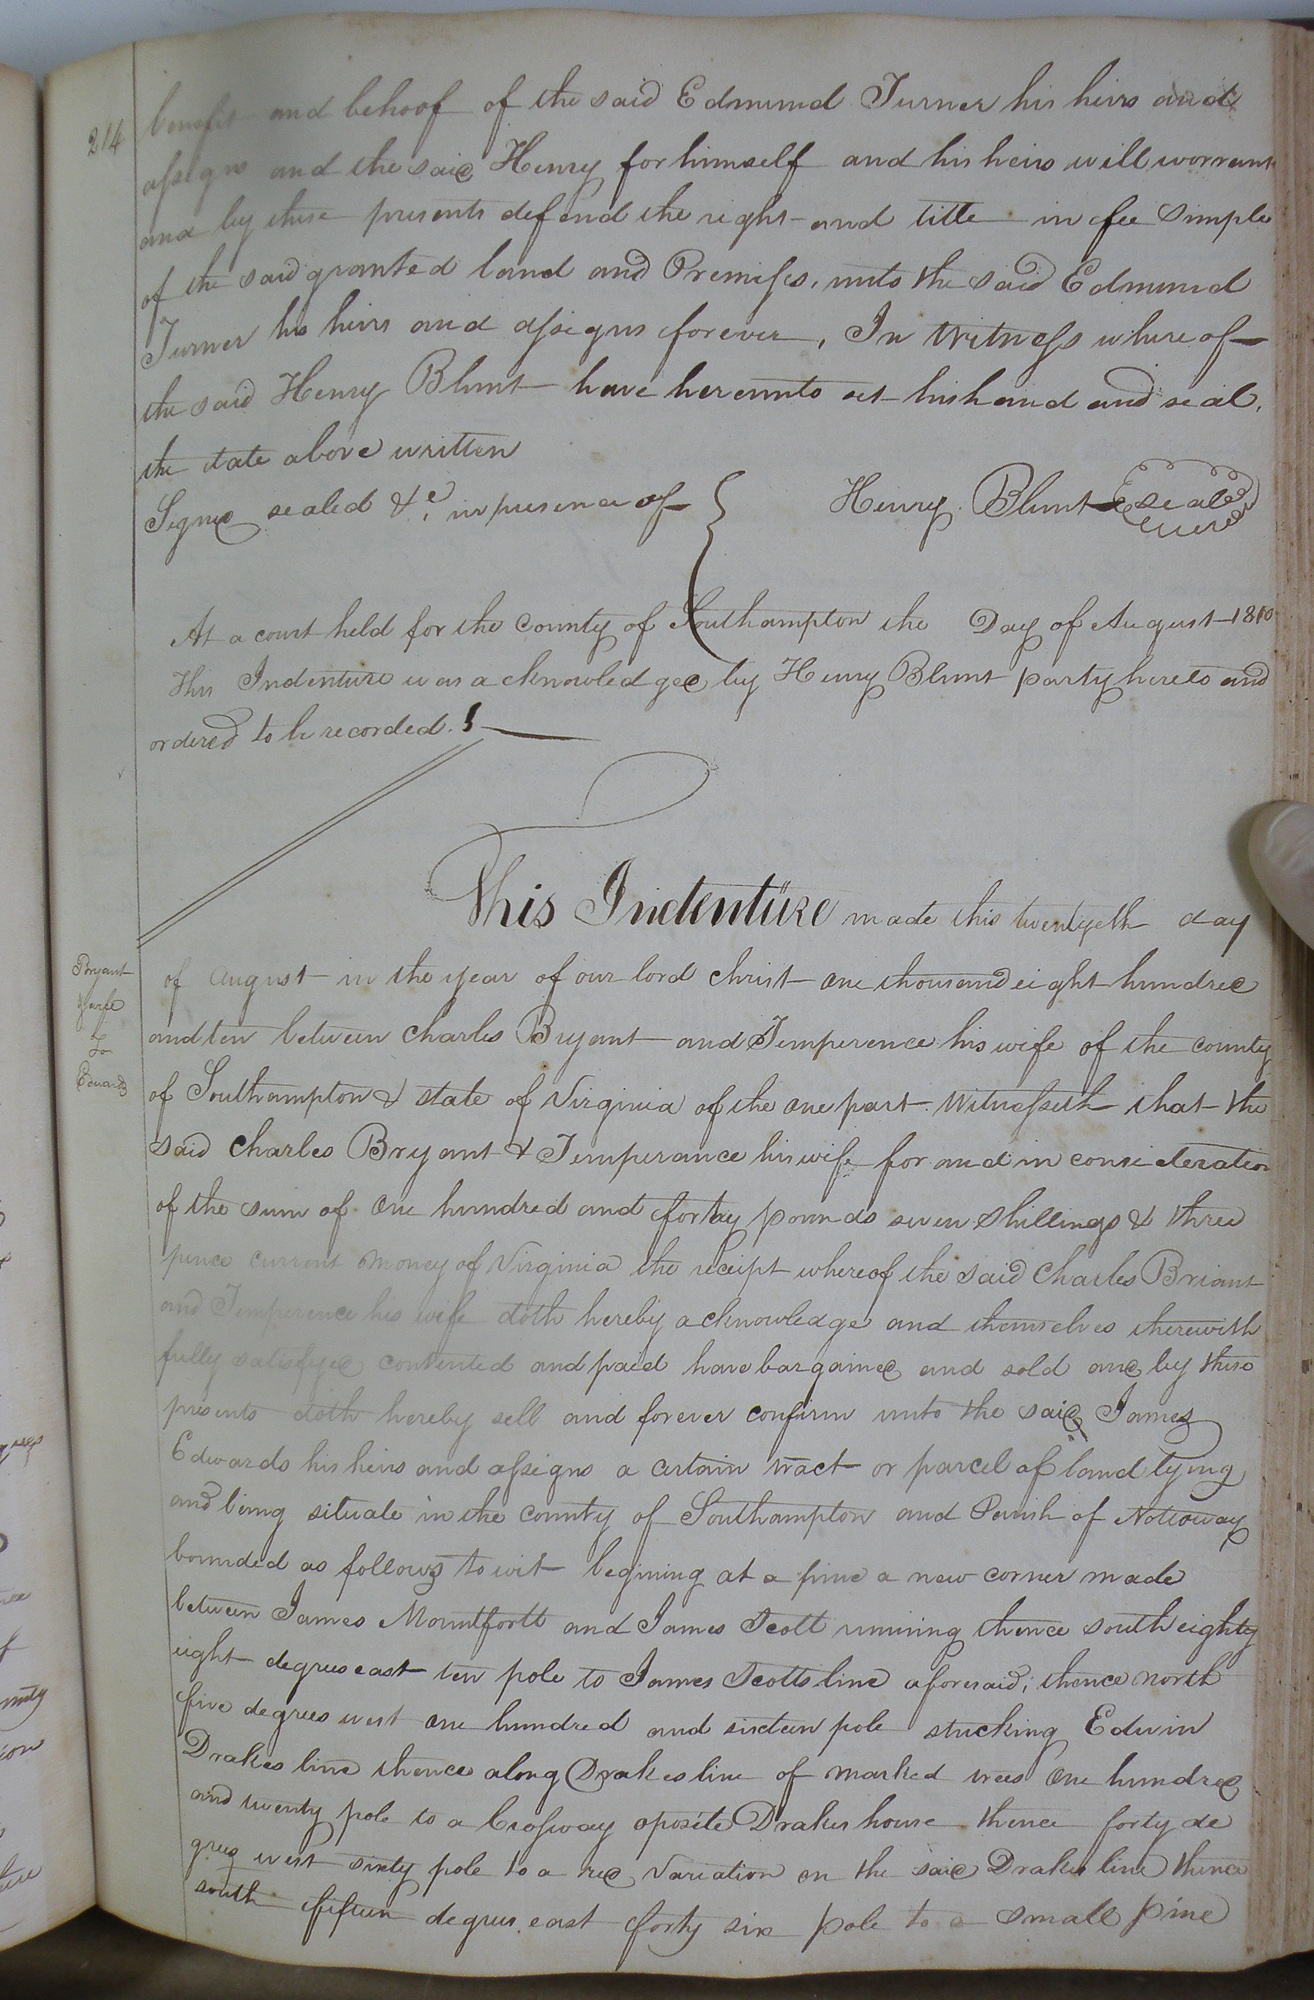 214
benefit and behoof of the said Edmund Turner his heirs and
assigns and the said Henry for himself and his heirs will warrant
and by these presents defend the right and title in fee Simple
of the said granted land and Premises, unto the said Edmund
Turner his heirs and assigns forever, In Witness where of
the said Henry Blunt have hereunto set his hand and seal,
the date above written
Signed sealed &c. in presence of
Henry Blunt seal
At a court held for the County of Southampton the Day of August 1810
This Indenture was acknowledged by Henry Blunt party hereto and
ordered to be recorded.
This Indenture made this twentyeth day
Bryant
& wife
To
Edwards
of August in the year of our lord christ one thousand eight hundred
and ten between Charles Bryant and Temperence his wife of the county
of Southampton & state of Virginia of the one part Witnesseth that the
said Charles Bryant & Temperance his wife for and in consideration
of the sum of one hundred and fortay pounds seven Shillings & three
pence current money of Virginia the receipt whereof the said Charles Briant
and Temperence his wife doth hereby acknowledge and themselves therewith
fully satisfyed contented and paid have bargained and sold and by these
presents doth hereby sell and forever confirm unto the said James
Edwards his heirs and assigns a certain tract or parcel of land lying
and being situate in the county of Southampton and Parish of Nottoway
bounded as follows to wit begining at a pine a new corner made
between James Mountfortt and James Scott running thence south eighty
eight degrees east ten pole to James Scotts line aforesaid, thence north
five degrees west one hundred and sixteen pole stricking Edwin
Drakes line thence along Drakes line of marked trees one hundred
and twenty pole to a Crossway oposite Drakes house thence forty de
grees west sixty pole to a red Variation on the said Drakes line thence
south fifteen degrees east forty six pole to a small pine